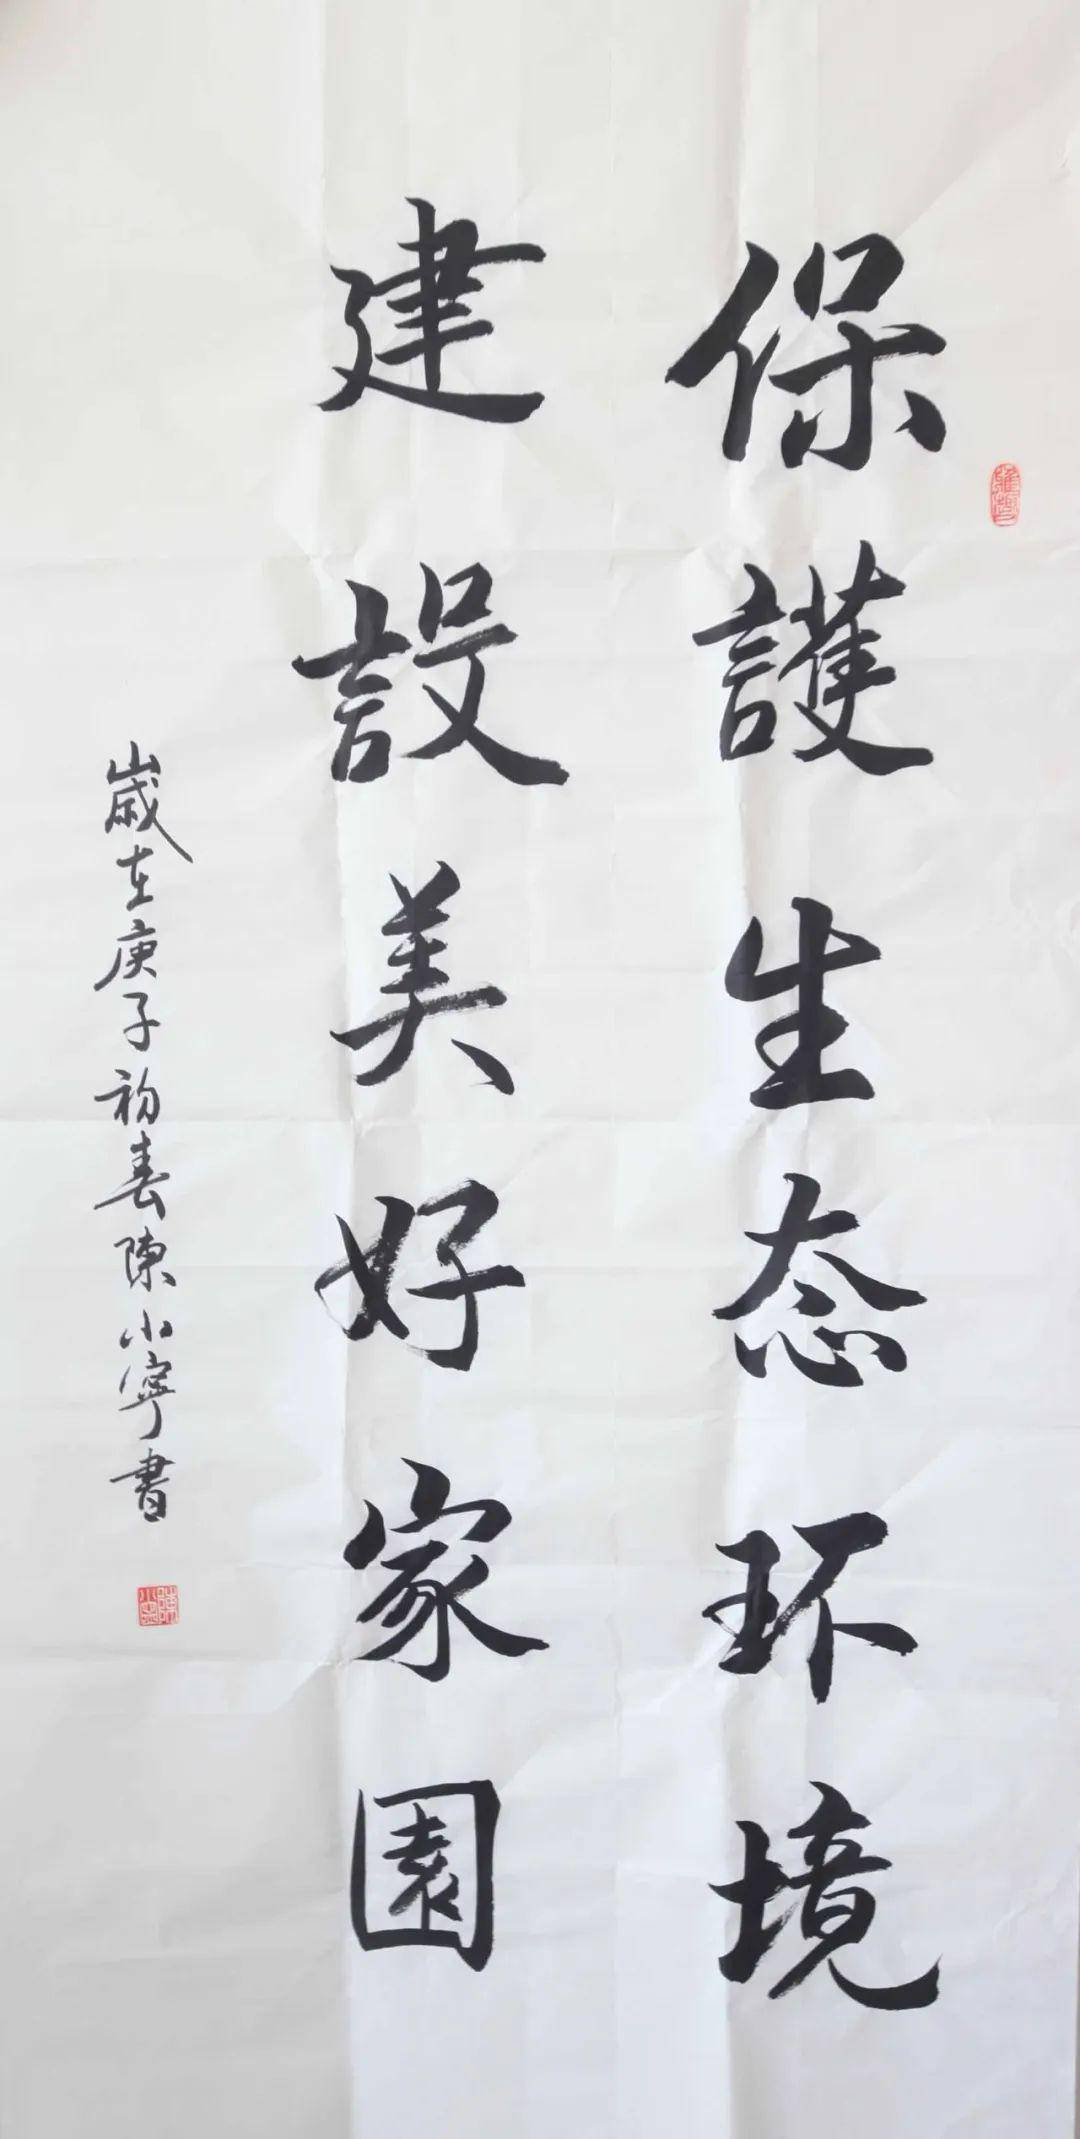 保護生态环境
建設美好家園
歲在庚子初春陳小寧書